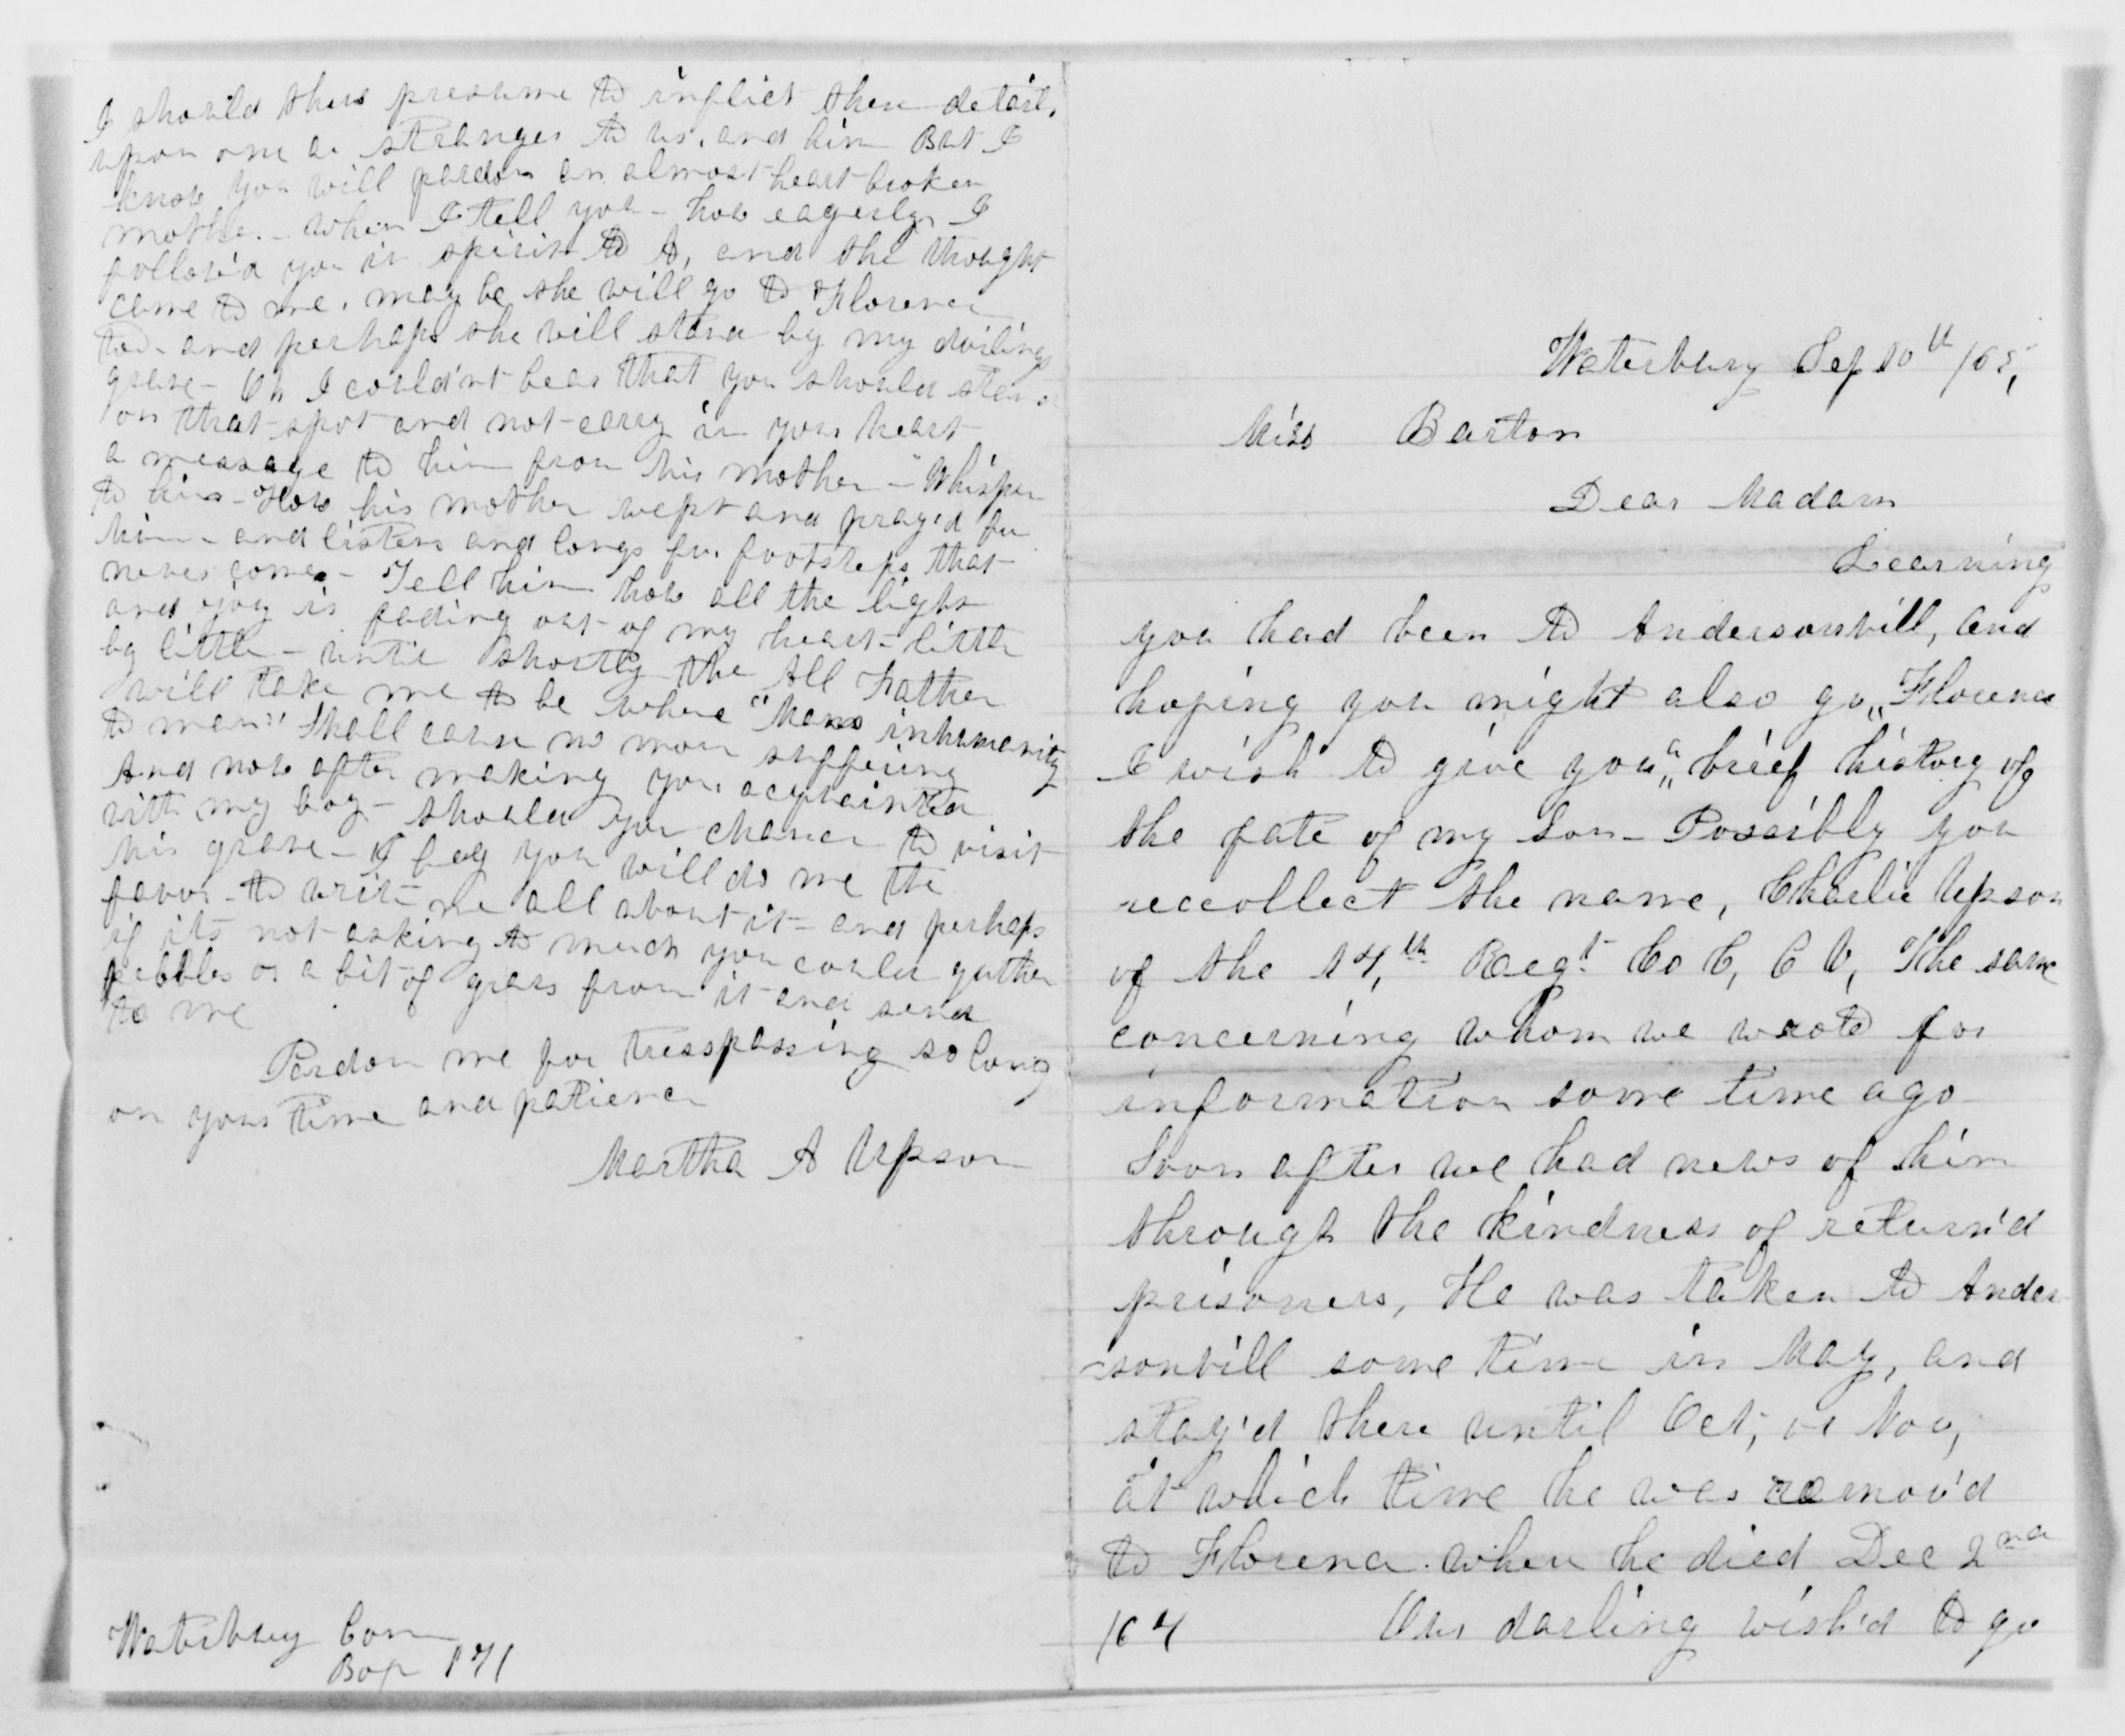 Waterbury Sep 10th /65,
Miss Barton
Dear Madam
Learning
you had been to Andersonvill, and
hoping you might also go Florence
I wish to give you a brief history of
the fate of my Son - Possibly you
reccollect the name, Charlie Upson
of the 14,th Regt Co C, C V, The same
concerning whom we wrote for
information some time ago
Soon after we had news of him
through the kindness of return'd
prisoners, He was taken to Ander
-sonvill some time in May, and
stay'd there until Oct, or Nov,
at which time he was remov'd
to Florence where he died Dec 2nd
/64 Our darling wish'd to go
I should thus presume to inflict these details
upon one a stranger to us, and him But I
know you will pardon an almost heart broken
mother - when I tell you - how eagerly I
follow'd you in spirit to A, and the thought
came to me, may be she will go to Florence
too - and perhaps she will stand by my darlings
grave - Oh I could'nt bear that you should stand
on that spot and not carry in your heart
a message to him from his mother - "Whisper
to him - How his mother wept and pray'd for
him - and listens and longs for footsteps that
never comes - Tell him how all the light
and joy is fading out of my heart - little
by little - until shortly the All Father
will take me to be where "Mans inhumanity
to man" shall cause no more suffering
And now after making you acquainted
with my boy - should you chance to visit
his grave - I beg you will do me the
favor - to write me all about it - and perhaps
if its not asking to much you could gather
pebbles or a bit of grass from it and send
to me
Pardon me for tresspassing so long
on your time and patience
Martha A Upson
Waterbury Conn
Box 171